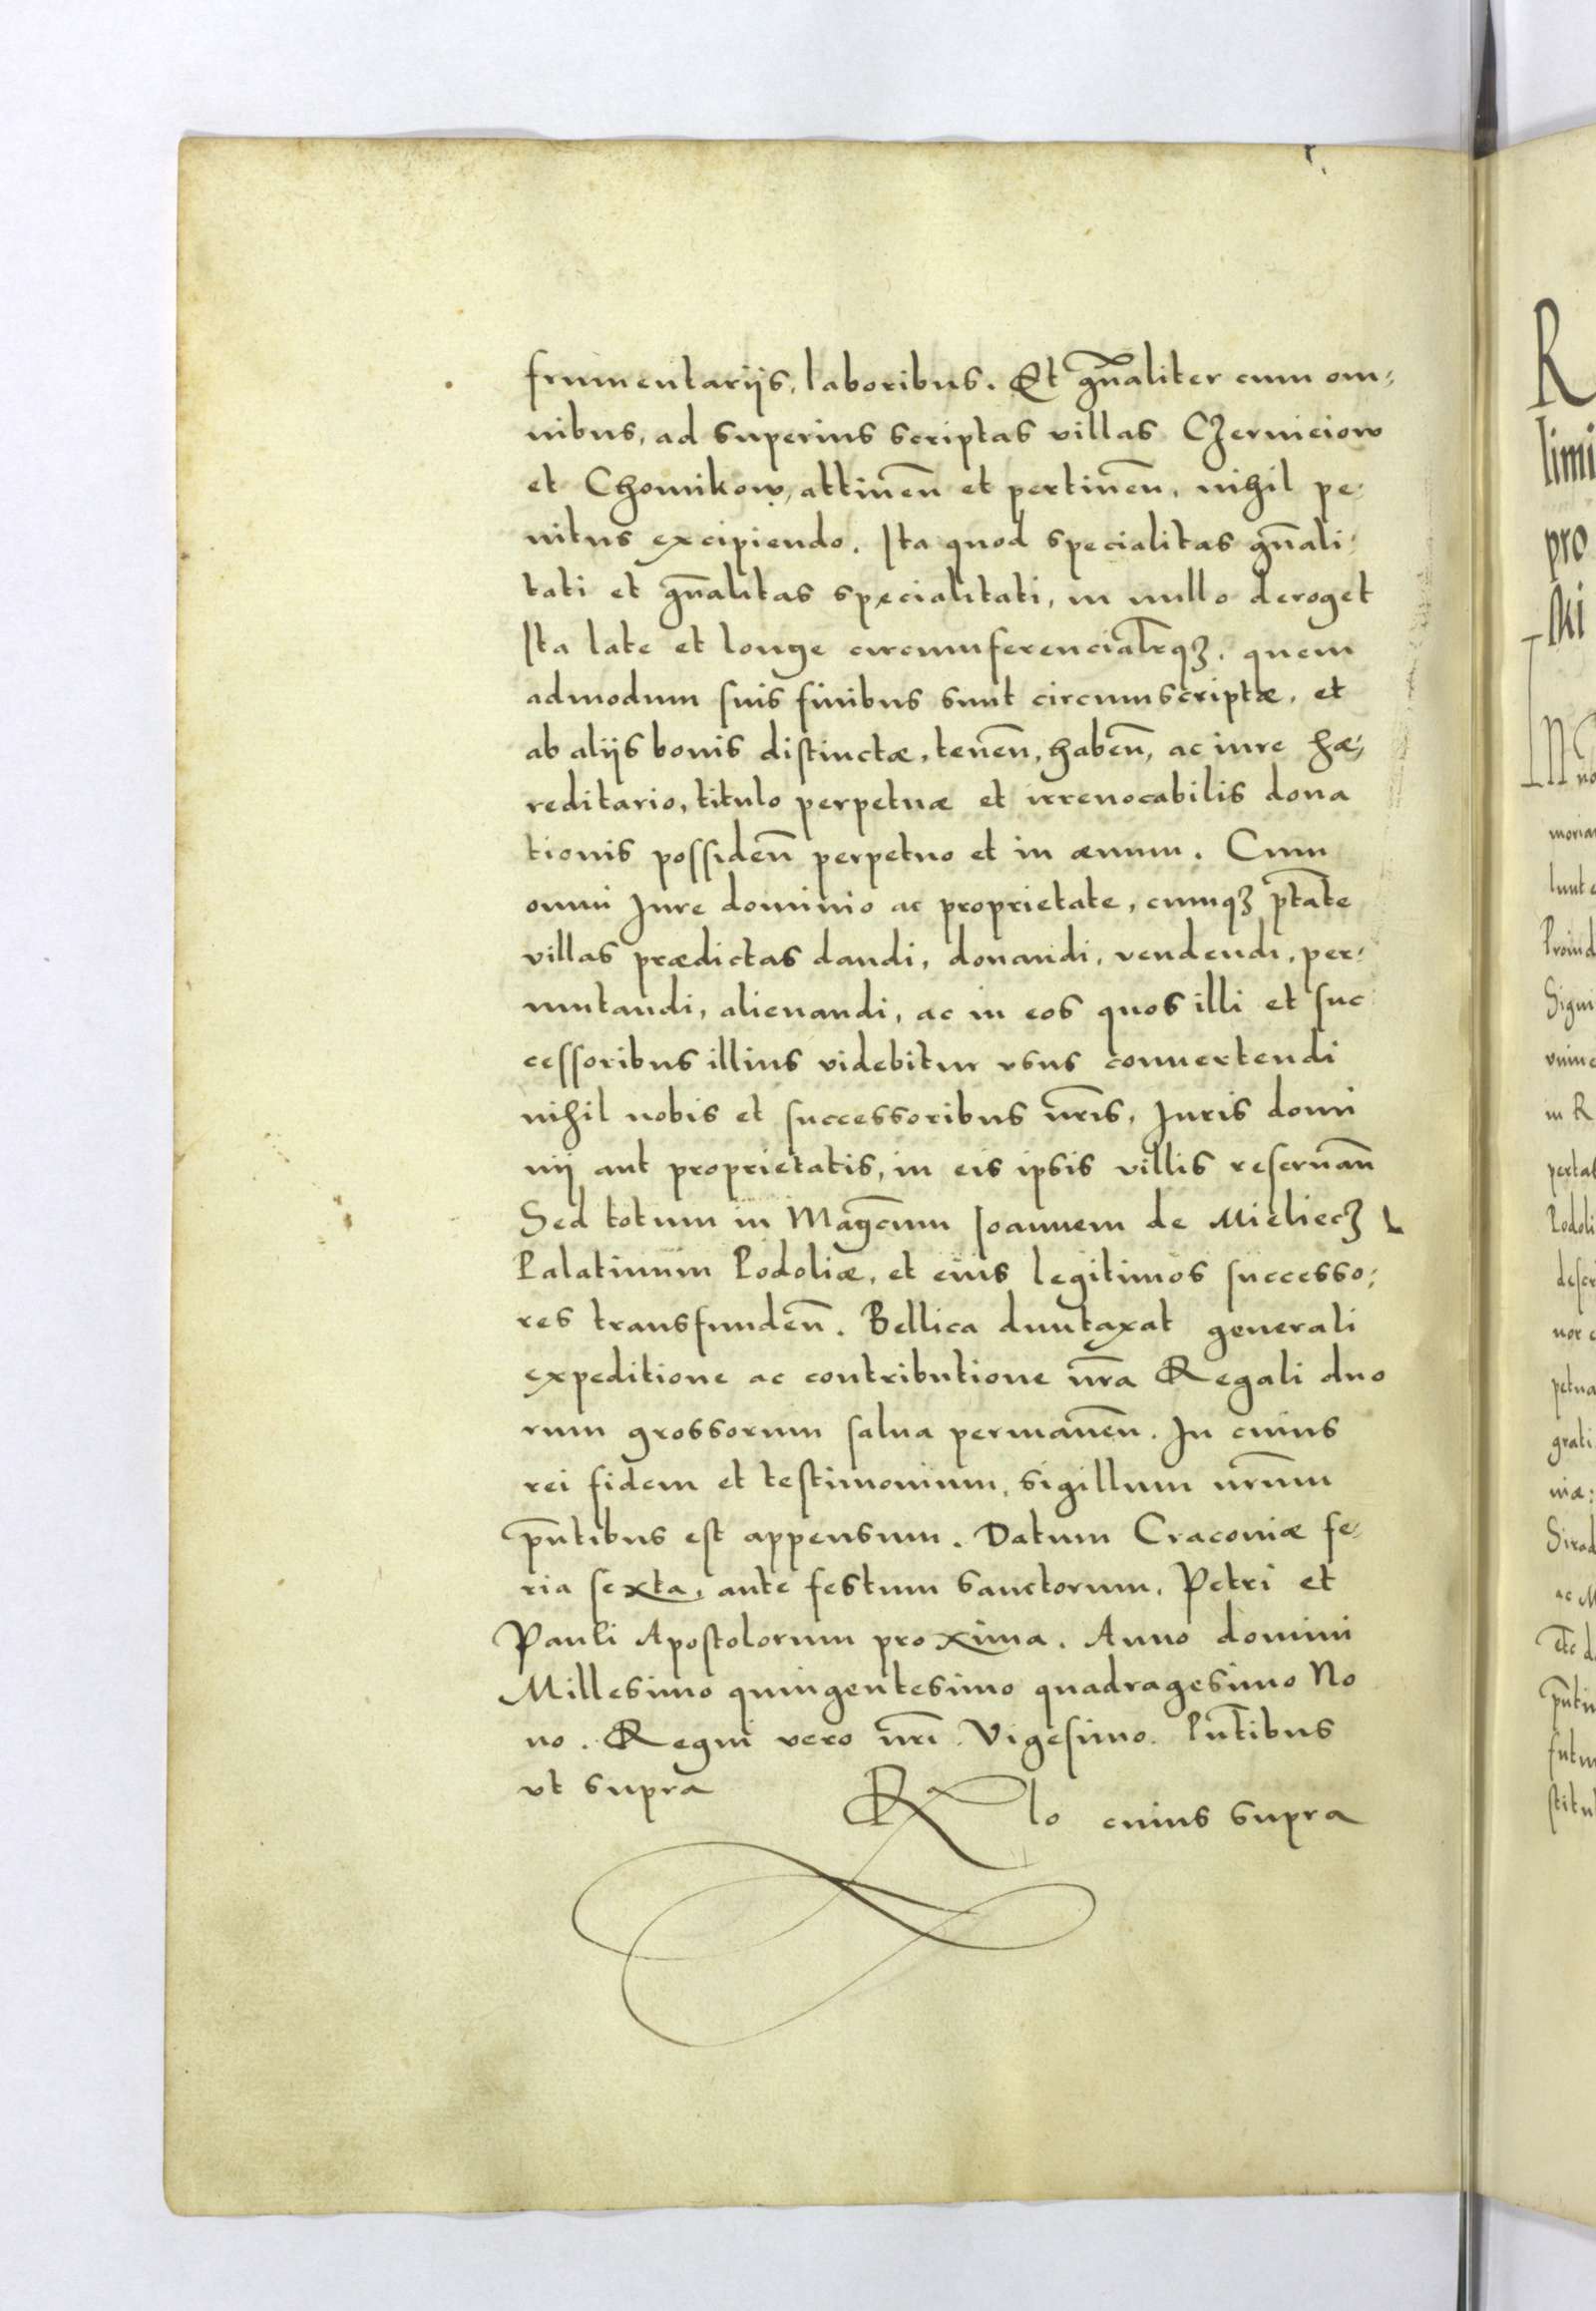 frumentarijs, laboribus. Et gn̄aliter cum om⸗
nibus, ad superius scriptas villas Czerniciow
et Chomikow, attineñ et pertineñ, nihil pe⸗
nitus excipiendo. Ita quod specialitas gn̄ali⸗
tati et gn̄alitas specialitati, in nullo deroget
Ita late et longe circumferencialr̄qꝫ, quem
admodum suis finibus sunt circumscriptæ, et
ab alijs bonis distinctæ, teneñ, habeñ, ac iure hæ⸗
reditario, titulo perpetuæ et irreuocabilis dona
tionis possideñ perpetuo et in æuum. Cum
omni Iure dominio ac proprietate, cumqꝫ pt̄ate
villas prædictas dandi, donandi, vendendi, per⸗
mutandi, alienandi, ac in eos quos illi et suc
cessoribus illius videbitur vsus conuertendi
nihil nobis et successoribus nr̄is, Iuris domi
nij aut proprietatis, in eis ipsis villis reseruañ
Sed totum in Magc̄um Joannem de Mieliecz
Palatinum Podoliæ, et eius legitimos successo⸗
res transfundeñ. Bellica duntaxat generali
expeditione ac contributione nr̄a Regali duo
rum grossorum salua permaneñ. In cuius
rei fidem et testimonium, sigillum nr̄um
pn̄tibus est appensum. Datum Cracouiæ fe⸗
ria sexta, ante festum sanctorum, Petri et
Pauli Apostolorum proxima. Anno domini
Millesimo quingentesimo quadragesimo No
no. Regni vero nr̄i Vigesimo. Pn̄tibus
vt supra
Rlo cuius supra
R
limi
pro
ski